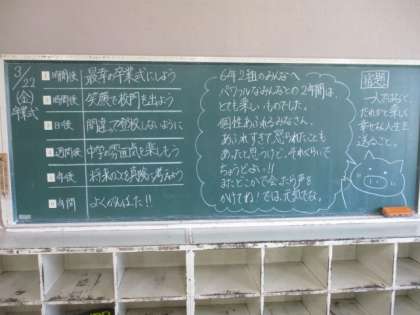 3/22
(金)
卒業式
1時間後 最幸の卒業式にしよう
時間後 笑顔で校門を出よう
日後 間違って登校しないように
週間後 中学の雰囲気を楽しもう
年後 将来のことを真剣に考えよう
年間 よくがんばった!!
6年2組のみんなへ
パワフルなみんなとの2年間は
とても楽しいものでした。
個性あふれるみなさん。
あふれすぎて怒られたことも
あったと思うけど、それぐらいで
ちょうどよい!!
またどこかで会ったら声を
かけてね!では、元気でな。
宿題
一人ひとりが
だれかを楽しく
幸せな人生を
送ること。